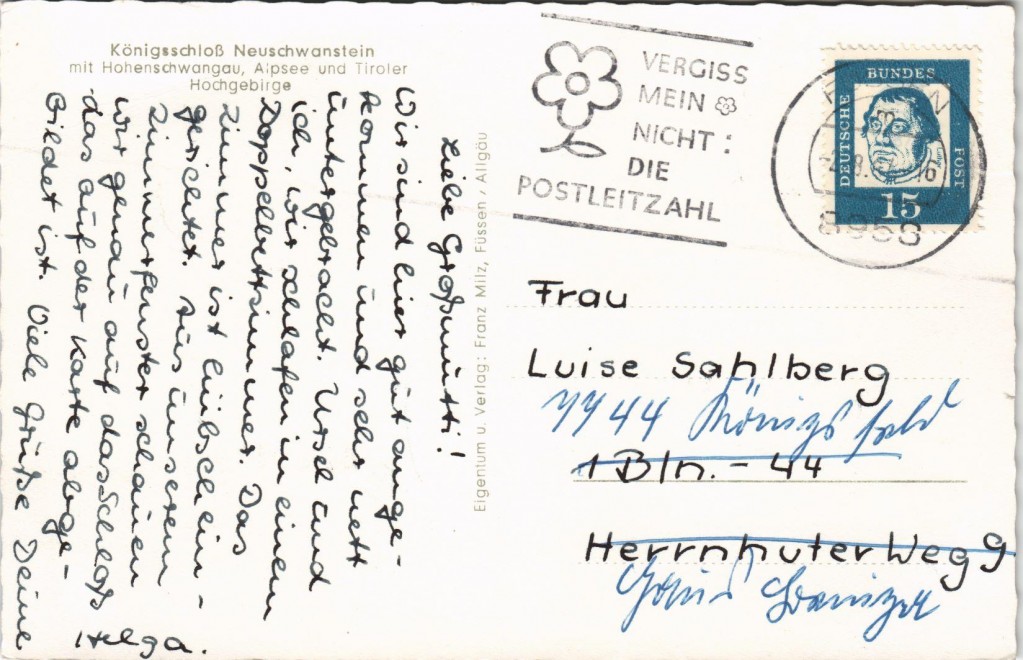 Königsschloß Neuschwanstein
mit Hohenschwangau, Alpsee und Tiroler
Hochgebirge
Liebe Großmutti!
Wir sind hier gut ange-
kommen und sehr nett
untergebracht. Ursel und
ich, wir schlafen in einem
Doppelbettzimmer. Das
Zimmer ist hübsch ein-
gerichtet. Aus unserem
Zimmerfenster schauen
wir genau auf das Schloß
das auf der Karte abge-
Bildet ist. Viele Grüße Deine
Helga.
Eigentum u. Verlag: Franz Milz, Füssen / Allgäu
VERGISS
MEIN
NICHT:
DIE
POSTLEITZAHL
8953
DEUTSCHE
BUNDES
POST
15
Frau
Luise Sahlberg
7744 Königsfeld
1 Bln. - 44
Herrnhuter Weg 9
Haus